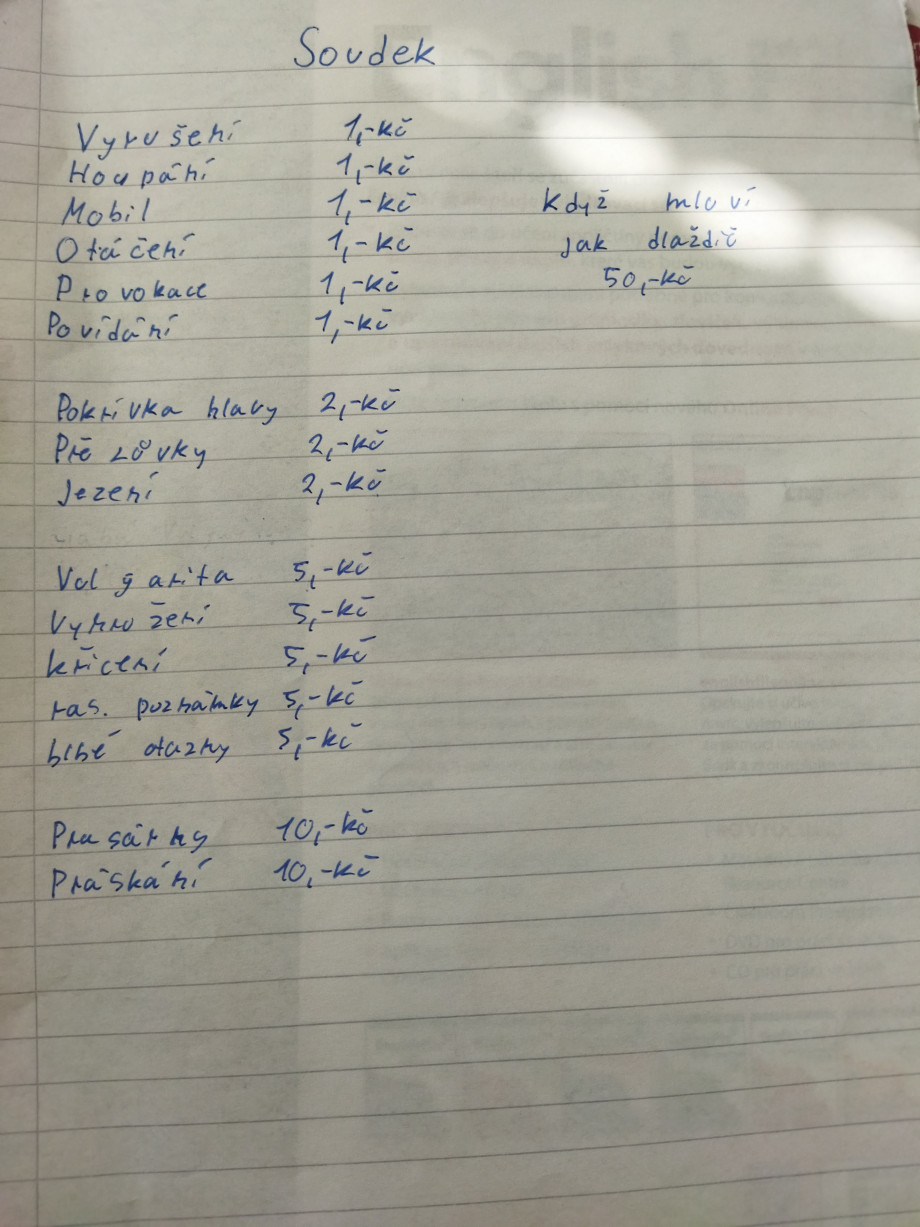 Soudek
Vyrušení 1,-Kč
Houpání 1,-Kč
Mobil 1,-Kč
Otáčení 1,-Kč
Provokace 1,-Kč
Povídání 1,-Kč
Když mluví
jak dlaždič
50,-Kč
Pokrívka hlavy 2,-Kč
Přezůvky 2,-Kč
Jezení 2,-Kč
Vulgarita 5,-Kč
Vyhrožení 5,-Kč
křicení 5,-Kč
ras. poznámky 5,-Kč
blbé otazky 5,-Kč
Prasárny 10,-Kč
Práskání 10,-Kč